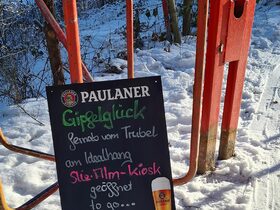 PAULANER
PAULANER
Gipfelglück
fernab vom Trubel
am Idealhang
Ski-Alm-Kiosk
geöffnet
to go...